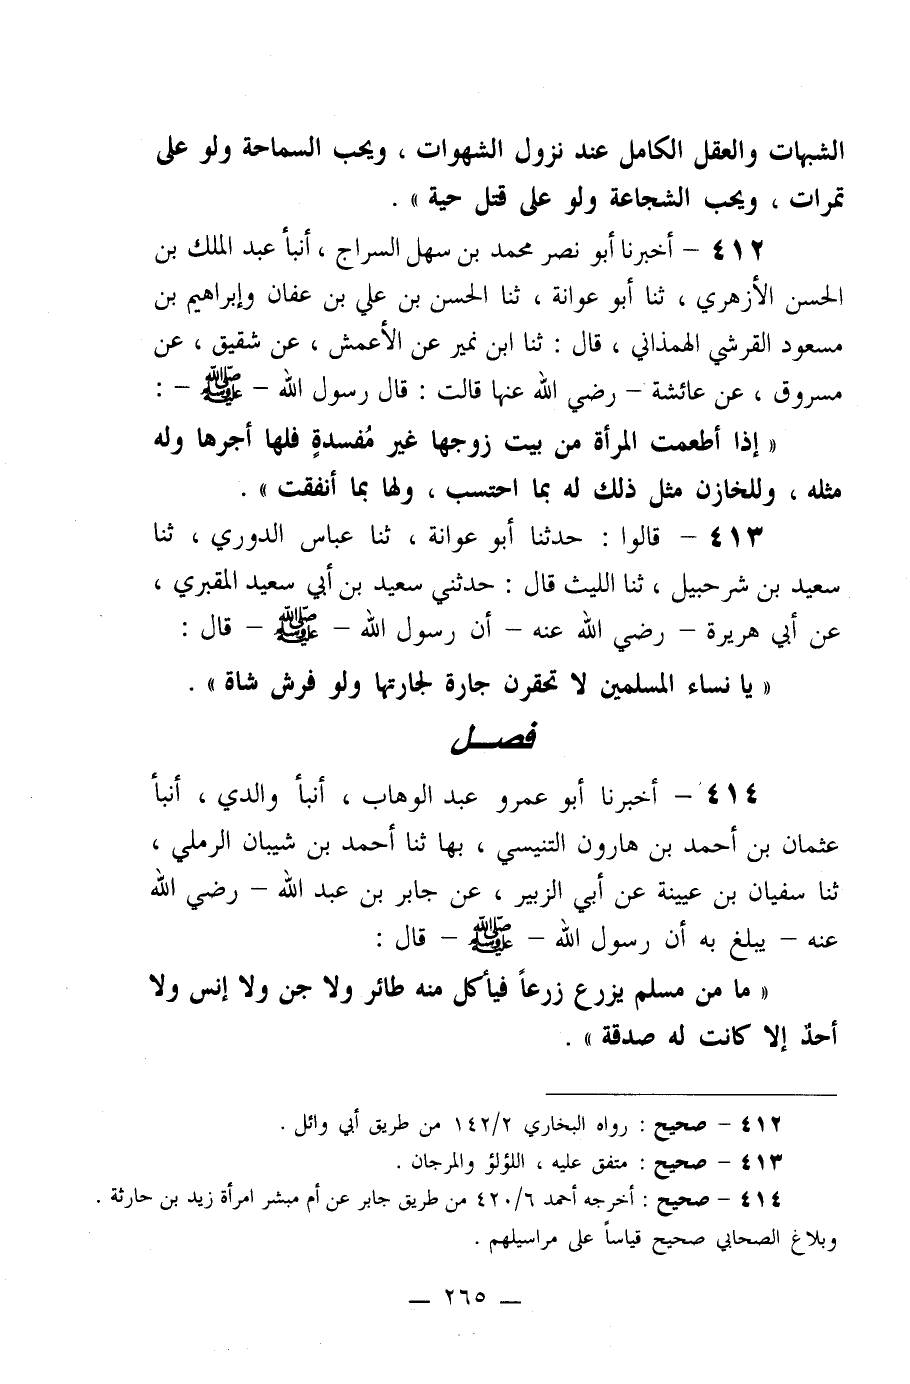 الشبهات والعقل الكامل عند نزول الشهوات ، ويحب السماحة ولو على
تمرات ، ويحب الشجاعة ولو على قتل حية » .
٤١٢ – أخبرنا أبو نصر محمد بن سهل السراج ، أنبأ عبد الملك بن
الحسن الأزهري ، ثنا أبو عوانة ، ثنا الحسن بن علي بن عفان وإبراهيم بن
مسعود القرشي الهمذاني ، قال : ثنا ابن نمير عن الأعمش ، عن شقيق ، عن
مسروق ، عن عائشة – رضي الله عنها قالت : قال رسول الله – ﷺ – :
« إذا أطعمت المرأة من بيت زوجها غير مُفسدةٍ فلها أجرها وله
مثله ، وللخازن مثل ذلك له بما احتسب ، ولها بما أنفقت » .
٤١٣ – قالوا : حدثنا أبو عوانة ، ثنا عباس الدوري ، ثنا
سعيد بن شرحبيل ، ثنا الليث قال : حدثني سعيد بن أبي سعيد المقبري ،
عن أبي هريرة – رضي الله عنه – أن رسول الله – ﷺ – قال :
« يا نساء المسلمين لا تحقرن جارة لجارتها ولو فرش شاة » .
فصــل
٤١٤ – أخبرنا أبو عمرو عبد الوهاب ، أنبأ والدي ، أنبأ
عثمان بن أحمد بن هارون التنيسي ، بها ثنا أحمد بن شيبان الرملي ،
ثنا سفيان بن عيينة عن أبي الزبير ، عن جابر بن عبد الله – رضي الله
عنه – يبلغ به أن رسول الله – ﷺ – قال :
« ما من مسلم يزرع زرعاً فيأكل منه طائر ولا جن ولا إنس ولا
أحدٌ إلا كانت له صدقة » .
٤١٢ – صحيح : رواه البخاري ١٤٢/٢ من طريق أبي وائل .
٤١٣ – صحيح : متفق عليه ، اللؤلؤ والمرجان .
٤١٤ – صحيح : أخرجه أحمد ٤٢٠/٦ من طريق جابر عن أم مبشر امرأة زيد بن حارثة .
وبلاغ الصحابي صحيح قياساً على مراسيلهم .
— ٢٦٥ —